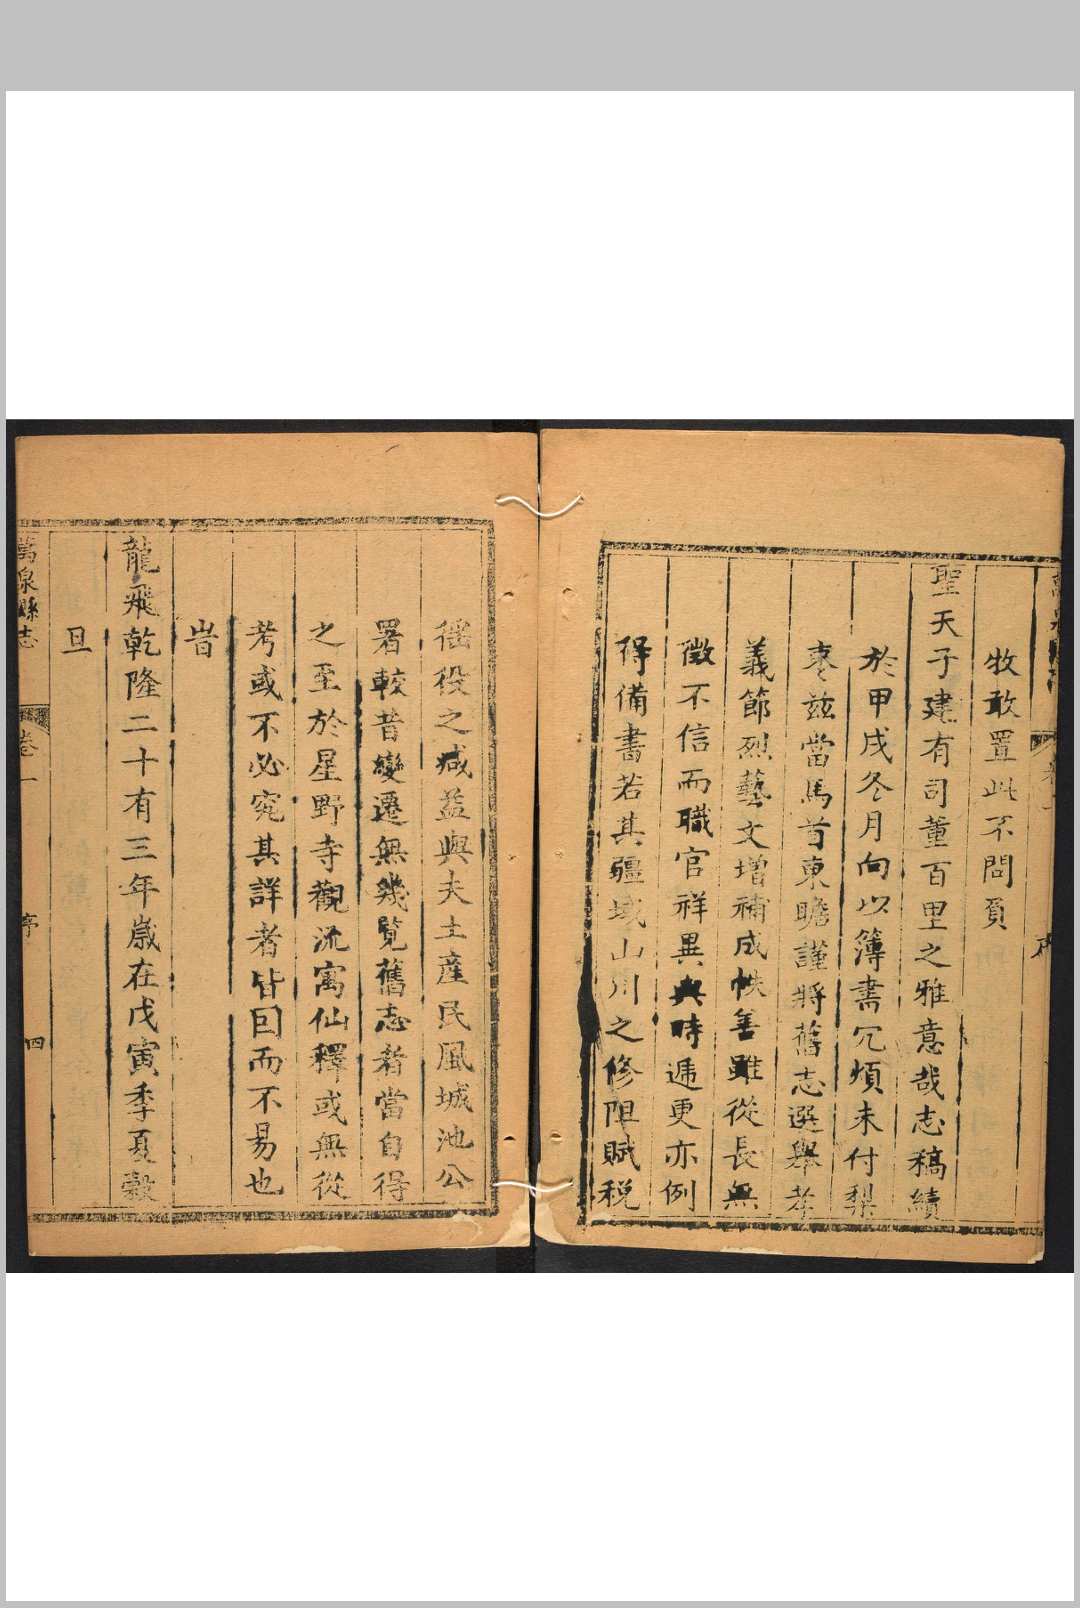 牧敢置此不問負
聖天子建有司董百里之雅意哉志稿續
於甲戌冬月向以簿書冗煩未付梨
棗茲當馬首東瞻謹將舊志選舉孝
義節烈藝文增補成帙善雖從長無
徵不信而職官祥異與時遞更亦例
得備書若其疆域山川之修阻賦稅
徭役之減益與夫土產民風城池公
署較昔變遷無幾覽舊志者當自得
之至於星野寺觀流寓仙釋或無從
考或不必究其詳者皆因而不易也
旹
龍飛乾隆二十有三年歲在戊寅季夏穀
旦
萬泉縣志
卷一
序
四